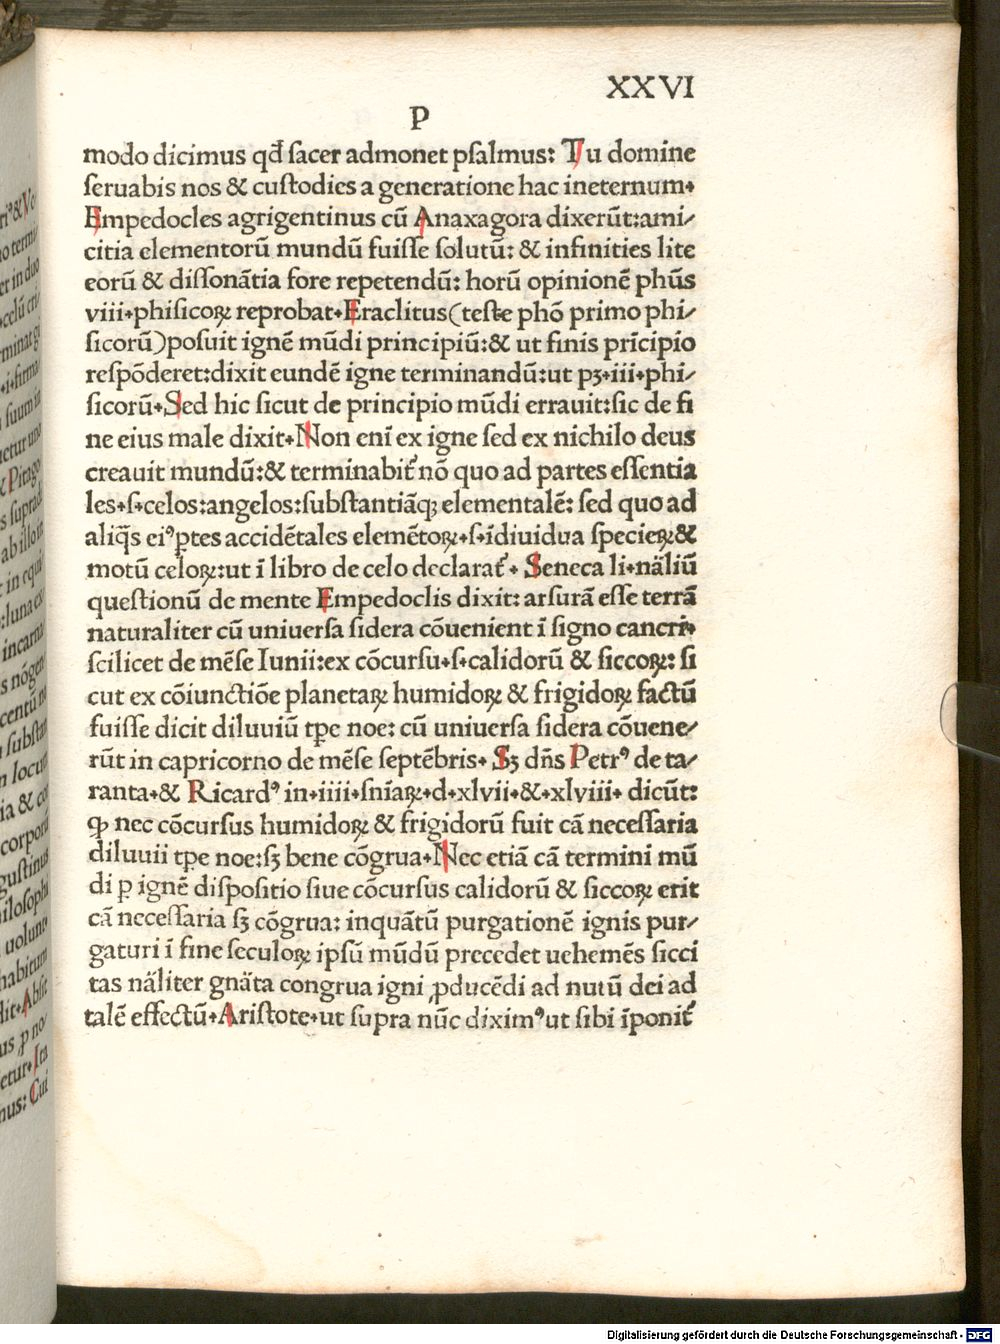 XXVI
P
modo dicimus qđ ſacer admonet pſalmus: Tu domine
ſeruabis nos & cuſtodies a generatione hac ineternum.
Empedocles agrigentinus cū Anaxagora dixerūt:ami/
citia elementorū mundū fuiſſe ſolutū: & infinities lite
eorū & diſſonātia fore repetendū: horū opinionē phūs
viii.phiſicoꝝ reprobat.Eraclitus(teſte phō primo phi/
ſicorū)poſuit ignē mūdi principiū:& ut finis prīcipio
reſpōderet:dixit eundē igne terminandū:ut pꝫ.iii.phi/
ſicorū.Sed hic ſicut de principio mūdi errauit:ſic de fi
ne eius male dixit.Non enī ex igne ſed ex nichilo deus
creauit mundū:& terminabit᷑ nō quo ad partes eſſentia
les.ſ.celos:angelos:ſubſtantiāqꝫ elementalē: ſed quo ad
aliq̄s eiꝰ ꝑtes accidētales elemētoꝝ.ſ.īdiuidua ſpecieꝝ &
motū celoꝝ:ut ī libro de celo declarat᷑. Seneca li.nāliū
queſtionū de mente Empedoclis dixit: arſurā eſſe terrā
naturaliter cū uniuerſa ſidera cōuenient ī ſigno cancri.
ſcilicet de mēſe Iunii:ex cōcurſu.ſ.calidorū & ſiccoꝝ: ſi
cut ex cōiunctiōe planetaꝝ humidoꝝ & frigidoꝝ factū
fuiſſe dicit diluuiū tꝑe noe: cū uniuerſa ſidera cōuene/
rūt in capricorno de mēſe ſeptēbris. Sꝫ dn̄s Petrꝰ de ta/
ranta.& Ricardꝰ in.iiii.ſniaꝝ.d.xlvii.&.xlviii. dicūt:
ꝙ nec cōcurſus humidoꝝ & frigidorū fuit cā neceſſaria
diluuii tꝑe noe:ſꝫ bene cōgrua.Nec etiā cā termini mū
di ꝑ ignē diſpoſitio ſiue cōcurſus calidorū & ſiccoꝝ erit
cā neceſſaria ſꝫ cōgrua: inquātū purgationē ignis pur/
gaturi ī fine ſeculoꝝ ipſū mūdū precedet uehemēs ſicci
tas nāliter gnāta congrua igni ꝓducēdi ad nutū dei ad
talē effectū.Ariſtote.ut ſupra nūc diximꝰut ſibi īponit᷑
Digitalisierung gefördert durch die Deutsche Forschungsgemeinschaft - DFG